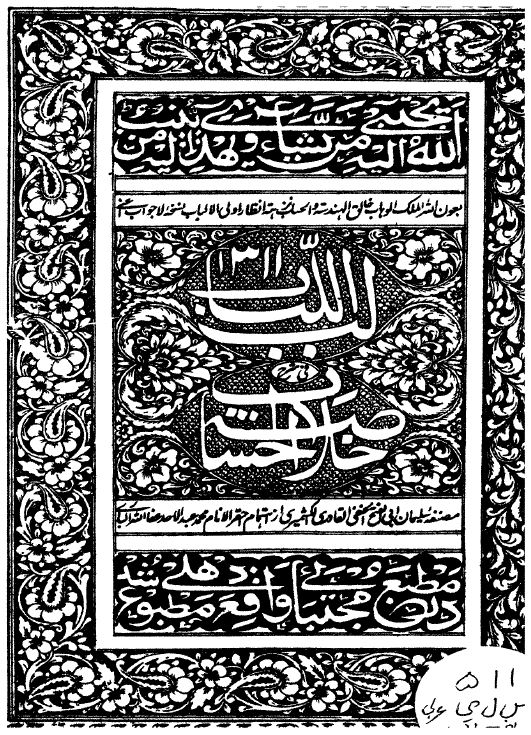 الله یجتبی الیه من یشاء ویهدی الیه من ینیب
بعون الله الملک الوهاب خالق الهندسة والحساب اولی الالباب نسخه لاجواب
۱۳۱۱
لب اللباب
خلاصة الحساب
مصنفه سلیمان القادری الکشمیری الانام محمد عبد الاحد
در مطبع مجتبائی واقع دهلی مطبوع شد
۵۱۱
عربی